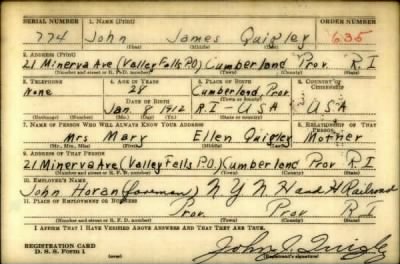 SERIAL NUMBER 1. NAME (Print) ORDER NUMBER
774 John James Quigley 635
(First) (Middle) (Last)
2. ADDRESS (Print)
21 Minerva Ave (Valley Falls P.O.) Cumberland Prov. R I
(Number and street or R. F. D. number) (Town) (County) (State)
3. TELEPHONE 4. AGE IN YEARS 5. PLACE OF BIRTH 6. COUNTRY OF CITIZENSHIP
None 28 Cumberland, Prov.
DATE OF BIRTH (Town or county)
Jan 8 1912 R.I - USA USA
(Exchange) (Number) (Mo.) (Day) (Yr.) (State or country)
7. NAME OF PERSON WHO WILL ALWAYS KNOW YOUR ADDRESS 8. RELATIONSHIP OF THAT PERSON
Mrs Mary Ellen Quigley Mother
(Mr., Mrs., Miss) (First) (Middle) (Last)
9. ADDRESS OF THAT PERSON
21 Minerva Ave (Valley Falls P.O) Cumberland Prov R I
(Number and street or R. F. D. number) (Town) (County) (State)
10. EMPLOYER'S NAME
John Horan (foreman) N Y N H and H Railroad
11. PLACE OF EMPLOYMENT OR BUSINESS
Prov. Prov R I
(Number and street or R. F. D. number) (Town) (County) (State)
I AFFIRM THAT I HAVE VERIFIED ABOVE ANSWERS AND THAT THEY ARE TRUE.
REGISTRATION CARD
D. S. S. Form 1 John J Quigley
(Registrant's signature)